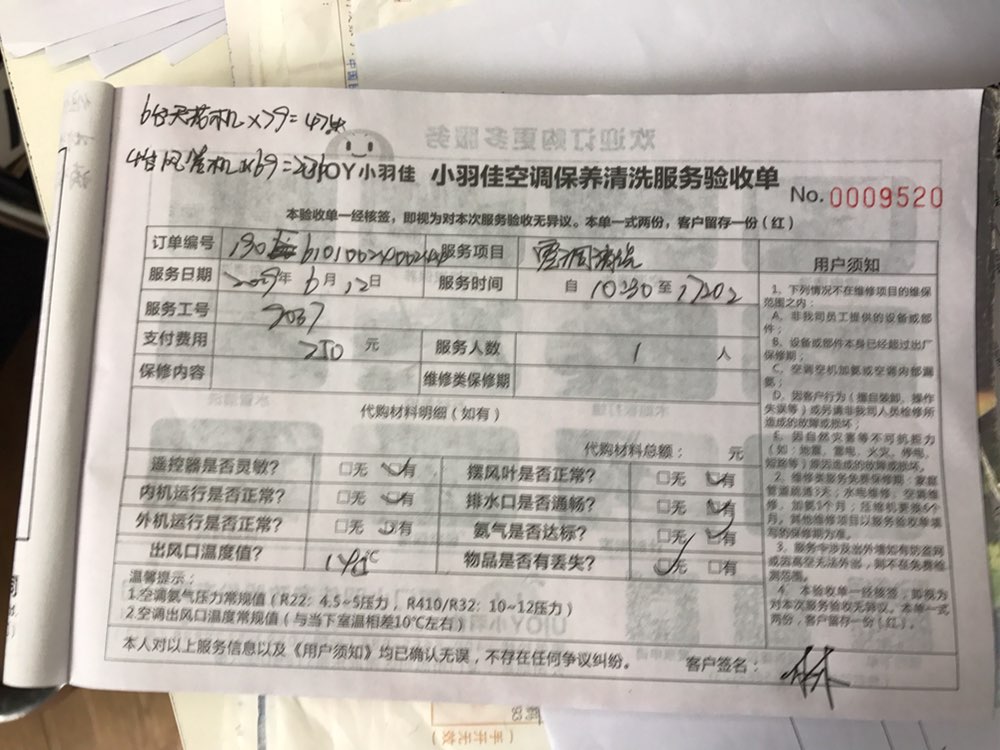 6台天花机×79=474
4台风管机×69=276
UJOY小羽佳 小羽佳空调保养清洗服务验收单
No. 0009520
本验收单一经核签，即视为对本次服务验收无异议。本单一式两份，客户留存一份（红）
订单编号 服务项目
服务日期 2019年 6月 12日 服务时间 自 10:30 至
服务工号 2037
支付费用 750 元 服务人数 1 人
保修内容 维修类保修期
代购材料明细（如有）
代购材料总额： 元
遥控器是否灵敏? □无 □有 摆风叶是否正常? □无 □有
内机运行是否正常? □无 □有 排水口是否通畅? □无 □有
外机运行是否正常? □无 □有 氨气是否达标? □无 □有
出风口温度值? ℃ 物品是否有丢失? □无 □有
温馨提示：
1.空调氨气压力常规值（R22：4.5~5压力，R410/R32：10~12压力）
2.空调出风口温度常规值（与当下室温相差10℃左右）
本人对以上服务信息以及《用户须知》均已确认无误，不存在任何争议纠纷。 客户签名： 林
用户须知
1、下列情况不在维修项目的维保
范围之内：
A、非我司员工提供的设备或部
件；
B、设备或部件本身已经超过出厂
保修期；
C、空调空机加氨或空调内部漏
氨；
D、因客户行为（擅自装卸、操作
失误等）或另请非我司人员检修所
造成的故障或损坏；
E、因自然灾害等不可抗拒力
（如：地震、雷电、火灾、停电、
短路等）原因造成的故障或损坏。
2、维修类服务免费保修期：家庭
管道疏通7天；水电维修、空调维
修、加氨1个月；压缩机更换6个
月。其他维修项目以服务验收单填
写的保修期为准。
3、服务中涉及出外墙如有防盗网
或因高空无法外出，则不在免费检
测范围。
4、本验收单一经核签，即视为
对本次服务验收无异议。本单一式
两份，客户留存一份（红）。